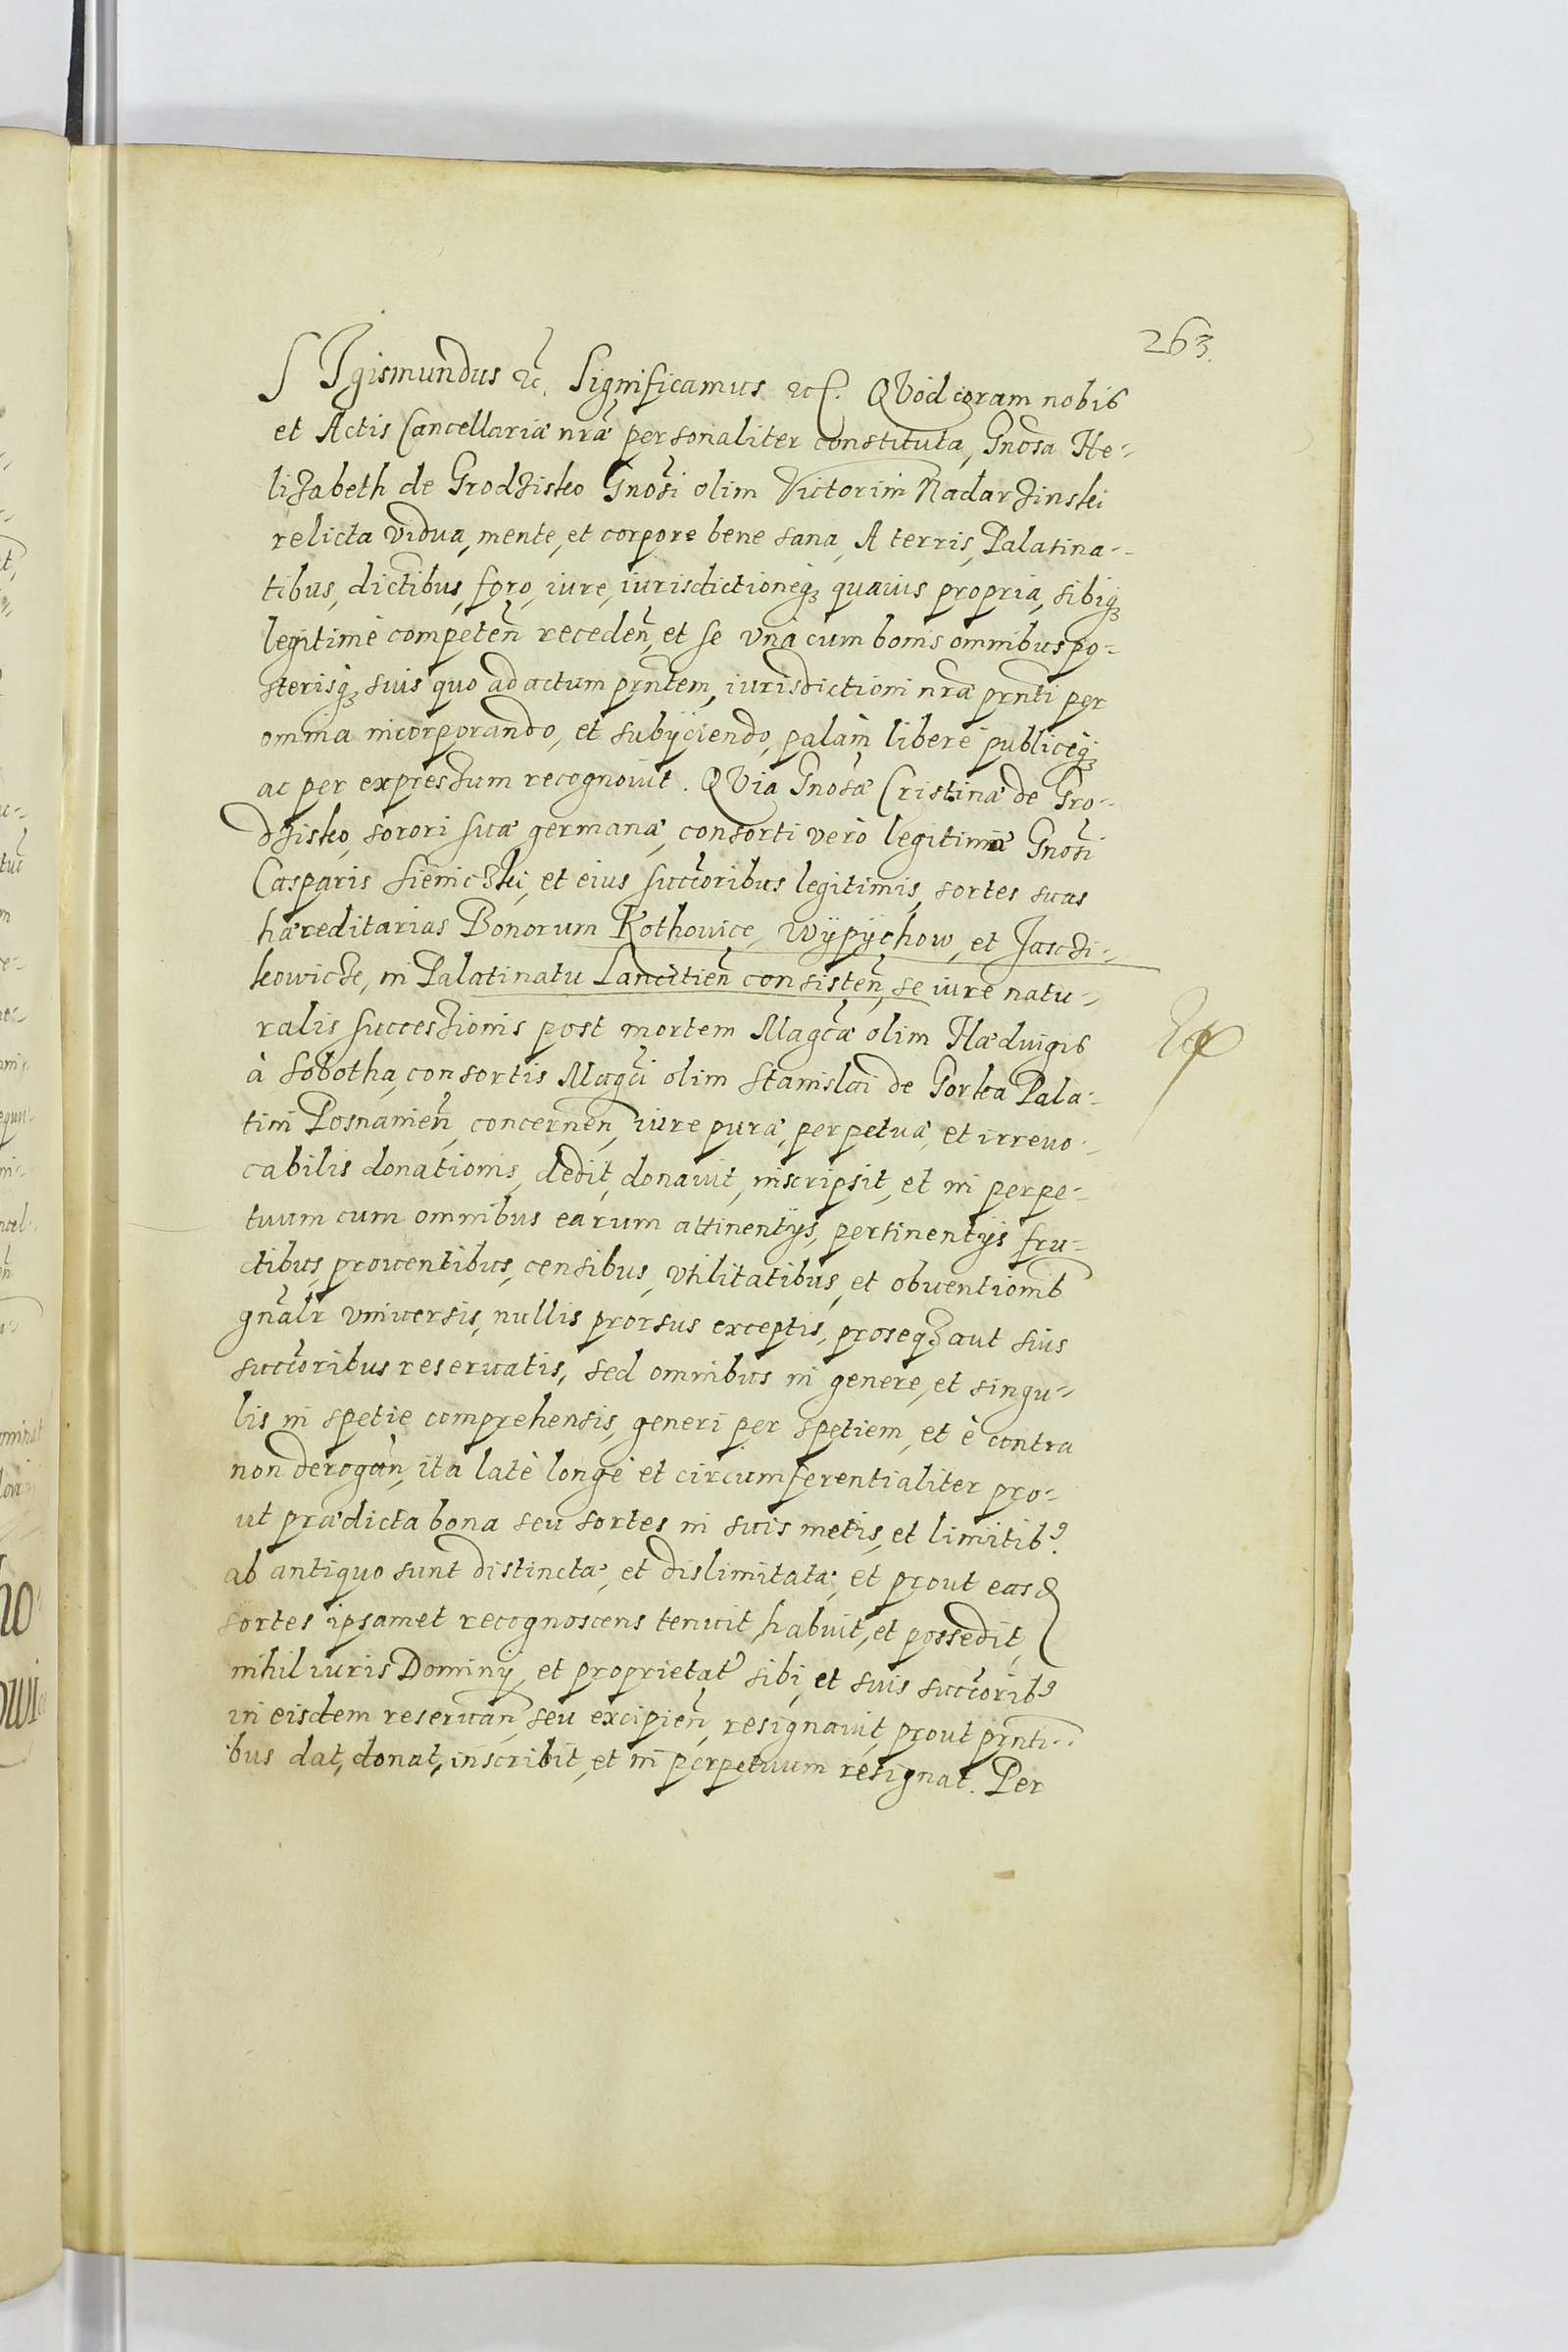 263.
SIgismundus etc. Significamus etc. QVod coram nobis
et Actis Cancellariæ nræ personaliter constituta, Gnosa He-
lizabeth de Grodzisko Gnosi olim Victorini Nadarzinski
relicta vidua, mente, et corpore bene sana, A terris, Palatina-
tibus, dictibus, foro, iure, iurisdictioneq₃ quauis propria, sibiq₃
legitimè competeñ recedeñ, et se vna cum bonis omnibus po-
sterisq₃ suis quo ad actum prntem, iurisdictioni nræ prnti per
omnia incorporando, et subÿciendo, palàm liberè publicèq₃
ac per expressum recognouit. QVia Gnosæ Cristinæ de Gro-
dzisko, sorori suæ germanæ, consorti verò legitimæ Gnosi
Casparis Sieniczki, et eius succoribus legitimis, sortes suas
hæreditarias Bonorum Kothowice, Wÿpÿchow, et Jaschi-
kowicze, in Palatinatu Lancitieñ consisteñ, se iure natu-
ralis successionis post mortem Magcæ olim Hæduigis
à Sobotha, consortis Magci olim Stanislai de Gorka Pala-
tini Posnanieñ, concerneñ, iure puræ, perpetuæ, et irreuo-
cabilis donationis, dedit, donauit, inscripsit, et in perpe-
tuum cum omnibus earum attinentÿs, pertinentÿs fru-
ctibus, prouentibus, censibus, vtilitatibus, et obuentionib
gnalr vniuersis, nullis prorsus exceptis, proseq₃ aut suis
succoribus reseruatis, sed omnibus in genere, et singu-
lis in spetie comprehensis, generi per spetiem, et è contra
non derogañ, ita latè longè et circumferentialiter pro-
ut prædicta bona seu sortes in suis metis, et limitib⁹
ab antiquo sunt distinctæ, et dislimitatæ, et prout easd
sortes ipsamet recognoscens tenuit, habuit, et possedit,
nihil iuris Dominÿ, et proprietat⁹ sibi, et suis succorib⁹
in eisdem reseruañ, seu excipieñ, resignauit, prout prnti-
bus dat, donat, inscribit, et in perpetuum resignat. Per